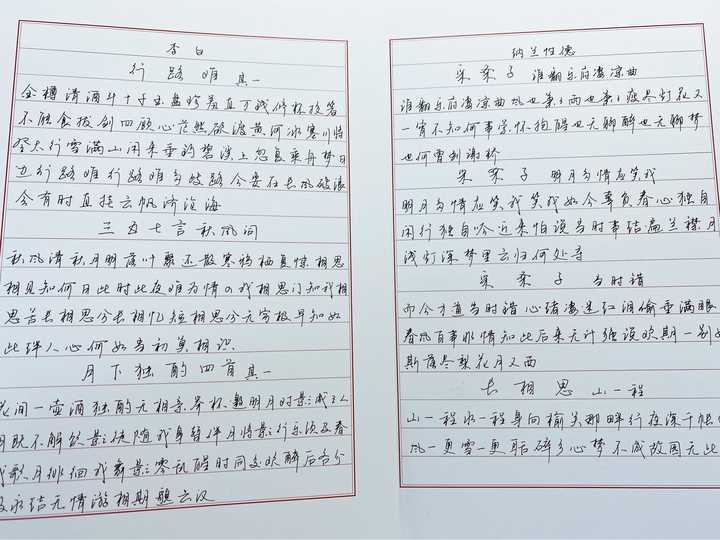 李白
行路难 其一
金樽清酒斗十千玉盘珍羞直万钱停杯投箸
不能食拔剑四顾心茫然欲渡黄河冰塞川将
登太行雪满山闲来垂钓碧溪上忽复乘舟梦日
边行路难行路难多歧路今安在长风破浪
会有时直挂云帆济沧海
三五七言秋风词
秋风清秋月明落叶聚还散寒鸦栖复惊相思
相见知何日此时此夜难为情入我相思门知我相
思苦长相思兮长相忆短相思兮无穷极早知如
此绊人心何如当初莫相识
月下独酌四首其一
花间一壶酒独酌无相亲举杯邀明月对影成三人
月既不解饮影徒随我身暂伴月将影行乐须及春
我歌月徘徊我舞影零乱醒时同交欢醉后各分
散永结无情游相期邈云汉
纳兰性德
采桑子 谁翻乐府凄凉曲
谁翻乐府凄凉曲风也萧萧雨也萧萧瘦尽灯花又
一宵不知何事萦怀抱醒也无聊醉也无聊梦
也何曾到谢桥
采桑子 明月多情应笑我
明月多情应笑我笑我如今辜负春心独自
闲行独自吟近来怕说当时事结遍兰襟月
浅灯深梦里云归何处寻
采桑子 当时错
而今才道当时错心绪凄迷红泪偷垂满眼
春风百事非情知此后来无计强说欢期一别如
斯落尽梨花月又西
长相思 山一程
山一程水一程身向榆关那畔行夜深千帐
风一更雪一更聒碎乡心梦不成故园无此